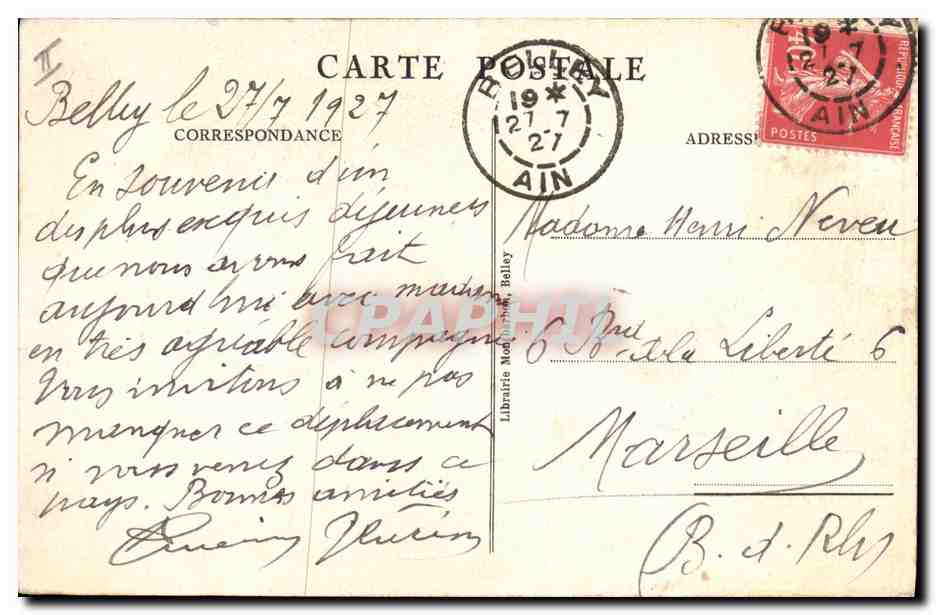 II
CARTE POSTALE
Belley le 27/7 1927
CORRESPONDANCE
En souvenir d'un
des plus exquis déjeuners
que nous ayons fait
aujourd'hui avec madame
en très agréable compagnie
Vous invitons à ne pas
manquer ce déplacement
si vous venez dans ce
pays. Bonnes amitiés
Librairie Montbarbon, Belley
BELLEY
19 *
27 7
27
AIN
ADRESSE
BELLEY
19 *
27 7
27
AIN
40
REPUBLIQUE FRANÇAISE
POSTES
Madame Henri Neveu
6 Bd de la Liberté 6
Marseille
(B. d. Rh)
CPAPHIL